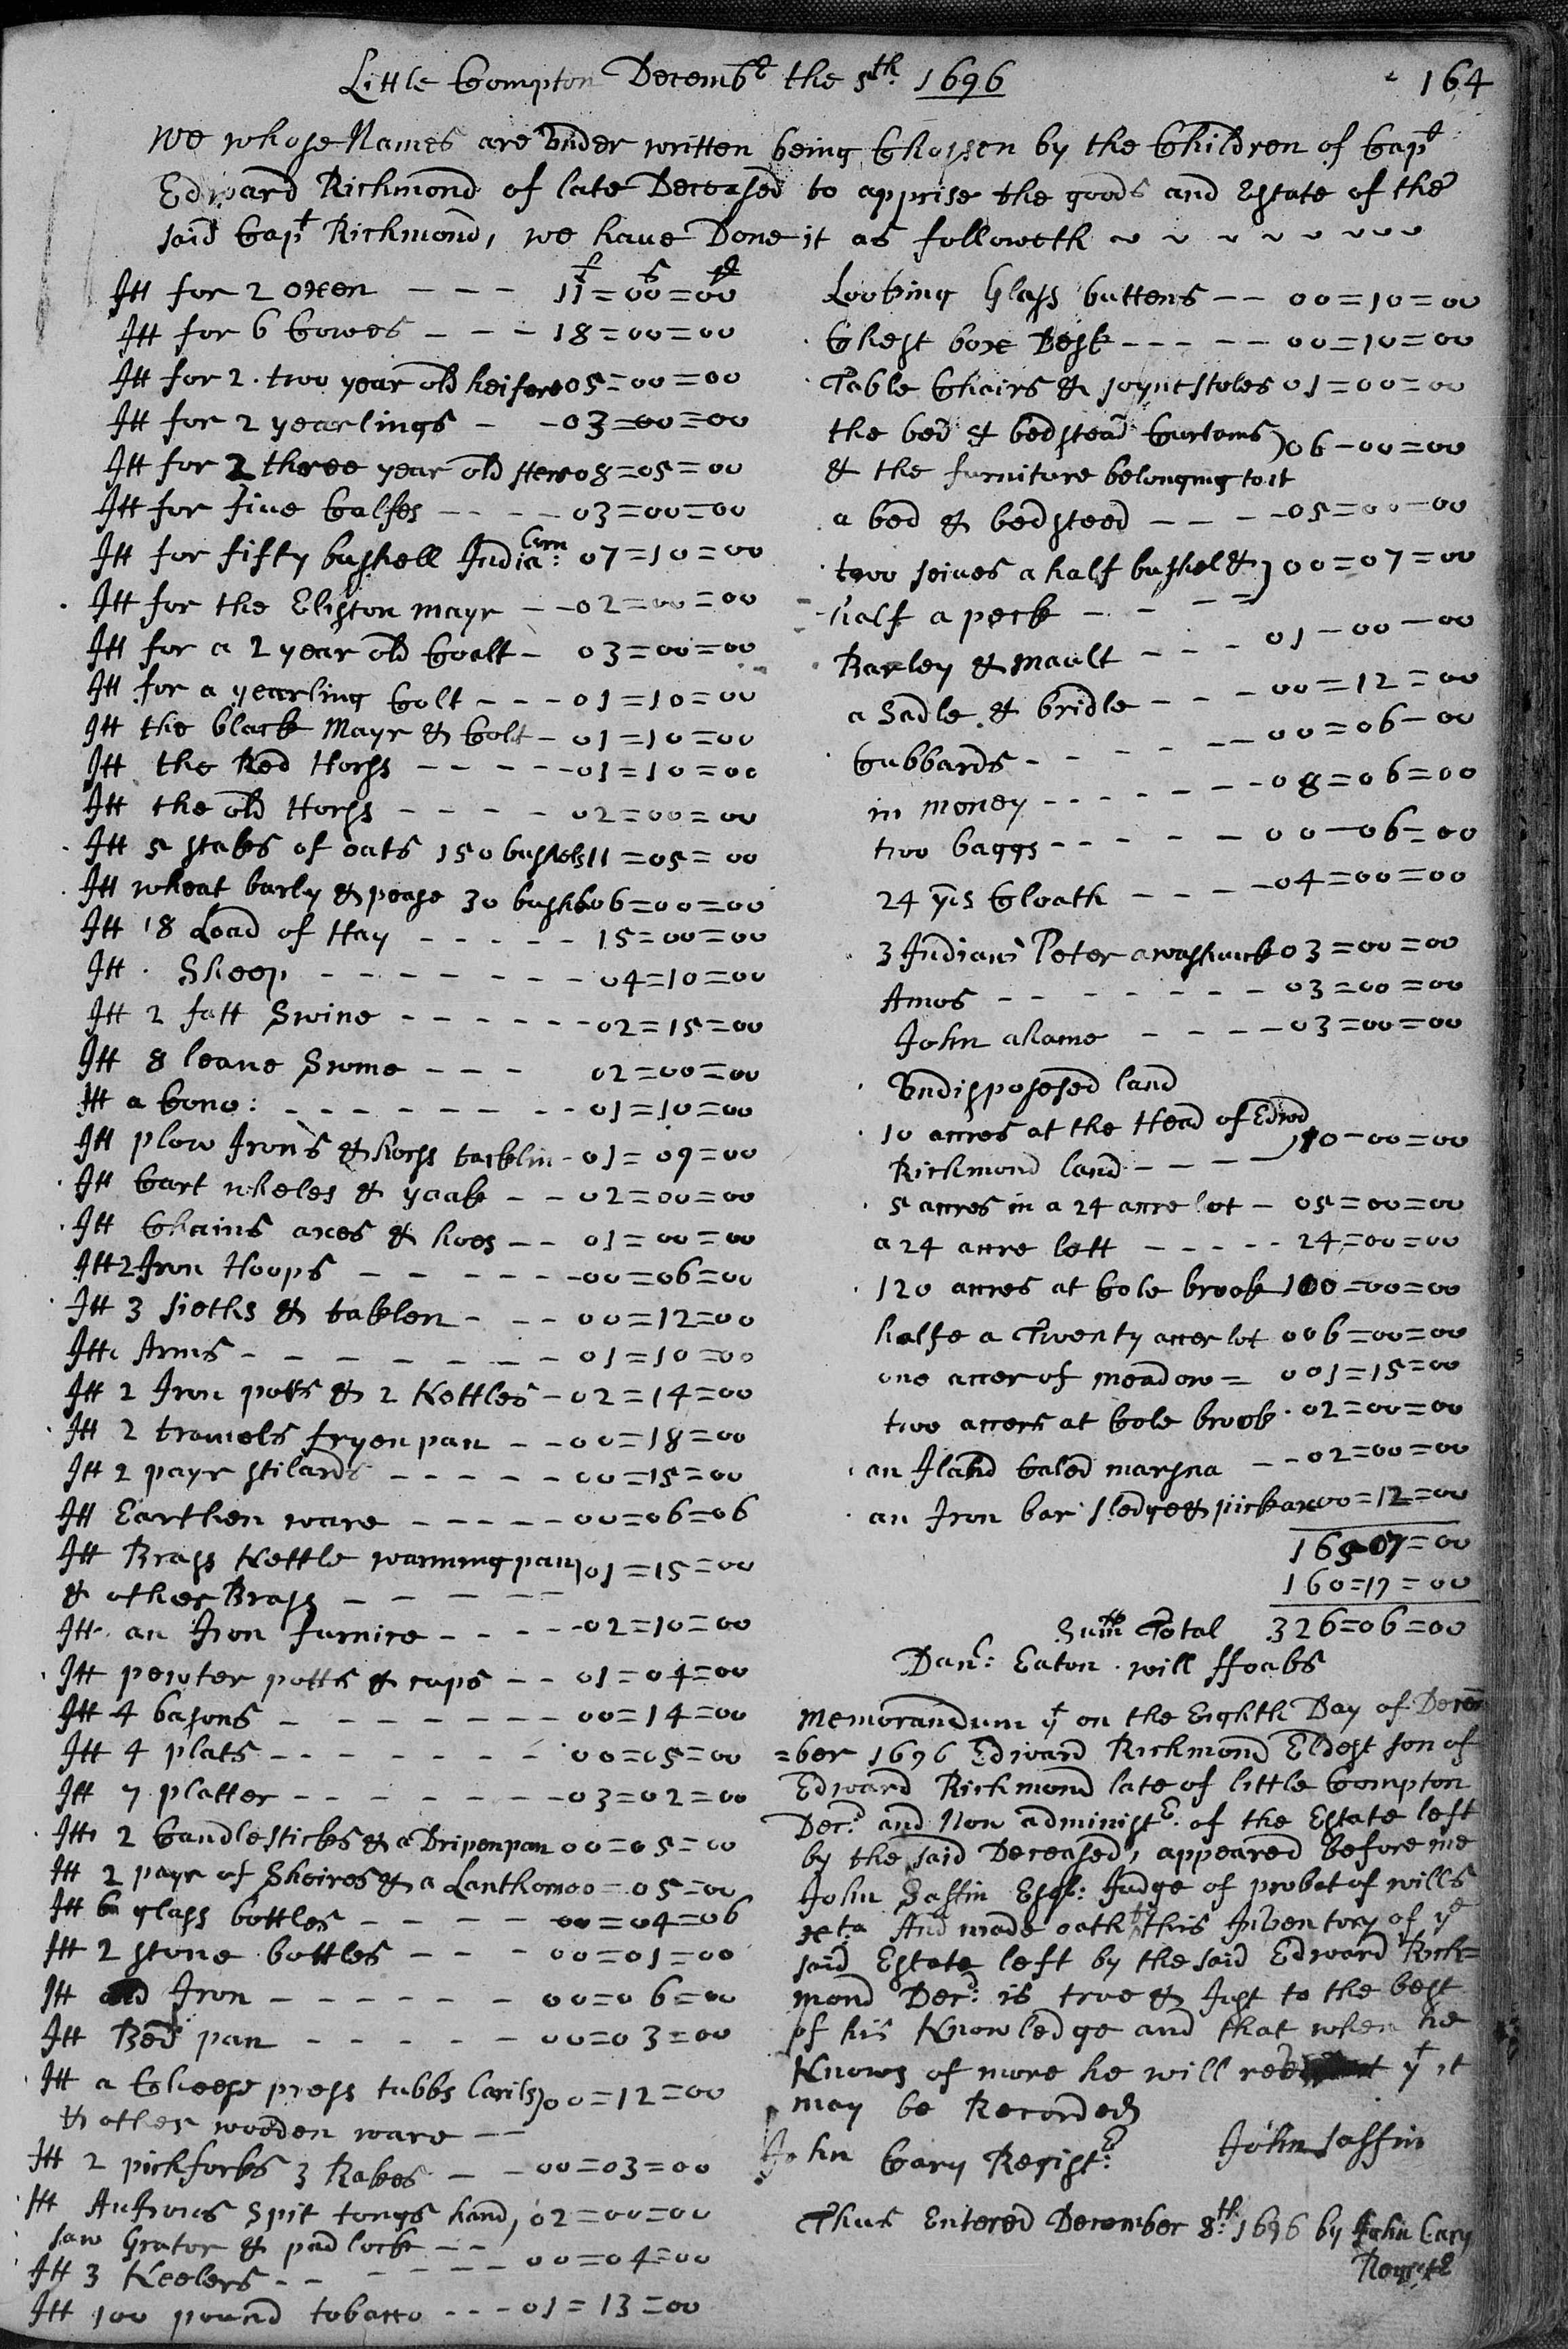 Little Compton Decembr the 5th 1696
164
We whose Names are under written being Chossen by the Children of Capt
Edward Richmond of late Deceased to apprise the goods and Estate of the
said Capt Richmond, we have Done it as followeth
£ s d
Itt for 2 oxen - - - 11=00=00
Itt for 6 Cowes - - - 18=00=00
Itt for 2 two year old heifers 05=00=00
Itt for 2 yearlings - - 03=00=00
Itt for 2 three year old sters 08=05=00
Itt for five Calfes - - - - 03=00=00
Itt for fifty bushell India: Corn 07=10=00
Itt for the Elishton mayr - - 02=00=00
Itt for a 2 year old Coalt - 03=00=00
Itt for a yearling Colt - - - 01=10=00
Itt the black Mayr & Colt - 01=10=00
Itt the Red Horss - - - - - 01=10=00
Itt the old Horss - - - - - 02=00=00
Itt 5 staks of oats 150 bushels 11=05=00
Itt wheat barly & pease 30 bushls 06=00=00
Itt 18 Load of Hay - - - - - 15=00=00
Itt Sheep - - - - - - - 04=10=00
Itt 2 fatt Swine - - - - - - 02=15=00
Itt 8 leane Swine - - - 02=00=00
Itt a Cono: - - - - - - - - 01=10=00
Itt plow Irons & horss tacklin - 01=09=00
Itt Cart wheles & yoak - - 02=00=00
Itt Chains axes & hoes - - 01=00=00
Itt 2 Iron Hoops - - - - - - 00=06=00
Itt 3 sieths & taklen - - - 00=12=00
Itt Arms - - - - - - - - 01=10=00
Itt 2 Iron potts & 2 Kettles - 02=14=00
Itt 2 tramels fryen pan - - 00=18=00
Itt 2 payr stilards - - - - - 00=15=00
Itt Earthen ware - - - - - 00=06=06
Itt Brass Kettle warming pan) 01=15=00
& other Brass - - - - -
Itt an Iron furnice - - - - 02=10=00
Itt pewter potts & cups - - 01=04=00
Itt 4 basons - - - - - - - 00=14=00
Itt 4 plats - - - - - - - 00=05=00
Itt 7 platter - - - - - - - 03=02=00
Itt 2 Candlesticks & a Dripenpan 00=05=00
Itt 2 payr of Sheires & a Lanthorn 00=05=00
Itt 6 glass bottles - - - - 00=04=06
Itt 2 stone bottles - - - 00=01=00
Itt old Iron - - - - - - 00=06=00
Itt Bed pan - - - - - 00=03=00
Itt a Cheese press tubbs barils) 00=12=00
& other wooden ware - -
Itt 2 pickforks 3 Rakes - - 00=03=00
Itt AnIrons Spit tongs hand, 02=00=00
saw Grator & pad lock - -
Itt 3 Keelers - - - - - - 00=04=00
Itt 100 pound tobacco - - - 01=13=00
Looking Glass buttens - - 00=10=00
Chest box Desk - - - - - 00=10=00
Table Chairs & joynt stoles 01=00=00
the bed & bedstead Curtains) 06-00=00
& the furniture belonging to it
a bed & bedsteed - - - - 05=00-00
two seives a half bushel &) 00=07=00
half a peck - - - -
Barley & mault - - - - 01-00-00
a Sadle & bridle - - - - 00=12=00
Cubbards - - - - - - 00=06-00
in money - - - - - - - 08=06=00
two baggs - - - - - 00-06=00
24 yds Cloath - - - - 04=00=00
3 Indians Peter awashunk 03=00=00
Amos - - - - - - - 03=00=00
John aHame - - - - 03=00=00
Undisposesed land
10 acres at the Head of Edwd
Richmond land - - - - 10-00=00
5 acres in a 24 acre lot - 05=00=00
a 24 acre lott - - - - - 24=00=00
120 acres at Cole brook 100-00=00
halfe a Twenty acer lot 006=00=00
one acer of meadow = 001=15=00
two acers at Cole brook 02=00=00
an Iland Caled marsna - - 02=00=00
an Iron bar sledge & pickax 00=12=00
165-07=00
160=17=00
Sum Total 326=06=00
Danl: Eaton will ffoabs
Memorandum yt on the Eighth Day of Decem
=ber 1696 Edward Richmond Eldest son of
Edward Richmond late of little Compton
Decd: and Now administr. of the Estate left
by the said Deceased, appeared Before me
John Saffin Esqr: Judge of probet of wills
&ta And made oath this Inventory of ye
said Estate left by the said Edward Rich=
mond Decd: is true & Just to the best
of his Knowledge and that when he
Knows of more he will yt it
may be Recorded
John Cary Registr:
John Saffin
Thus Entered December 8th: 1696 by John Cary
Regestr